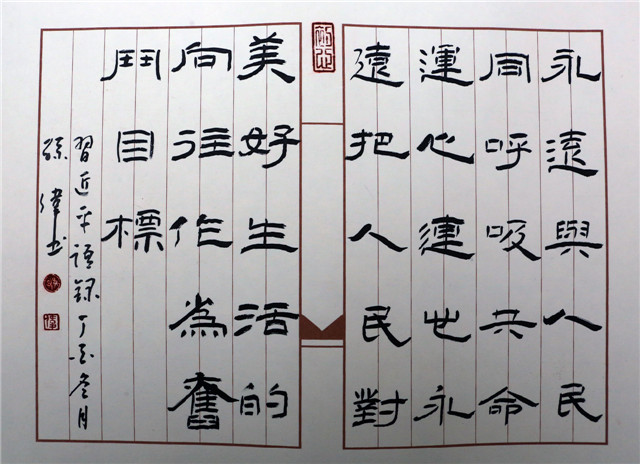 永遠與人民
同呼吸共命
運心連心永
遠把人民對
美好生活的
向往作為奮
鬥目標
習近平語錄丁酉冬月
孫書